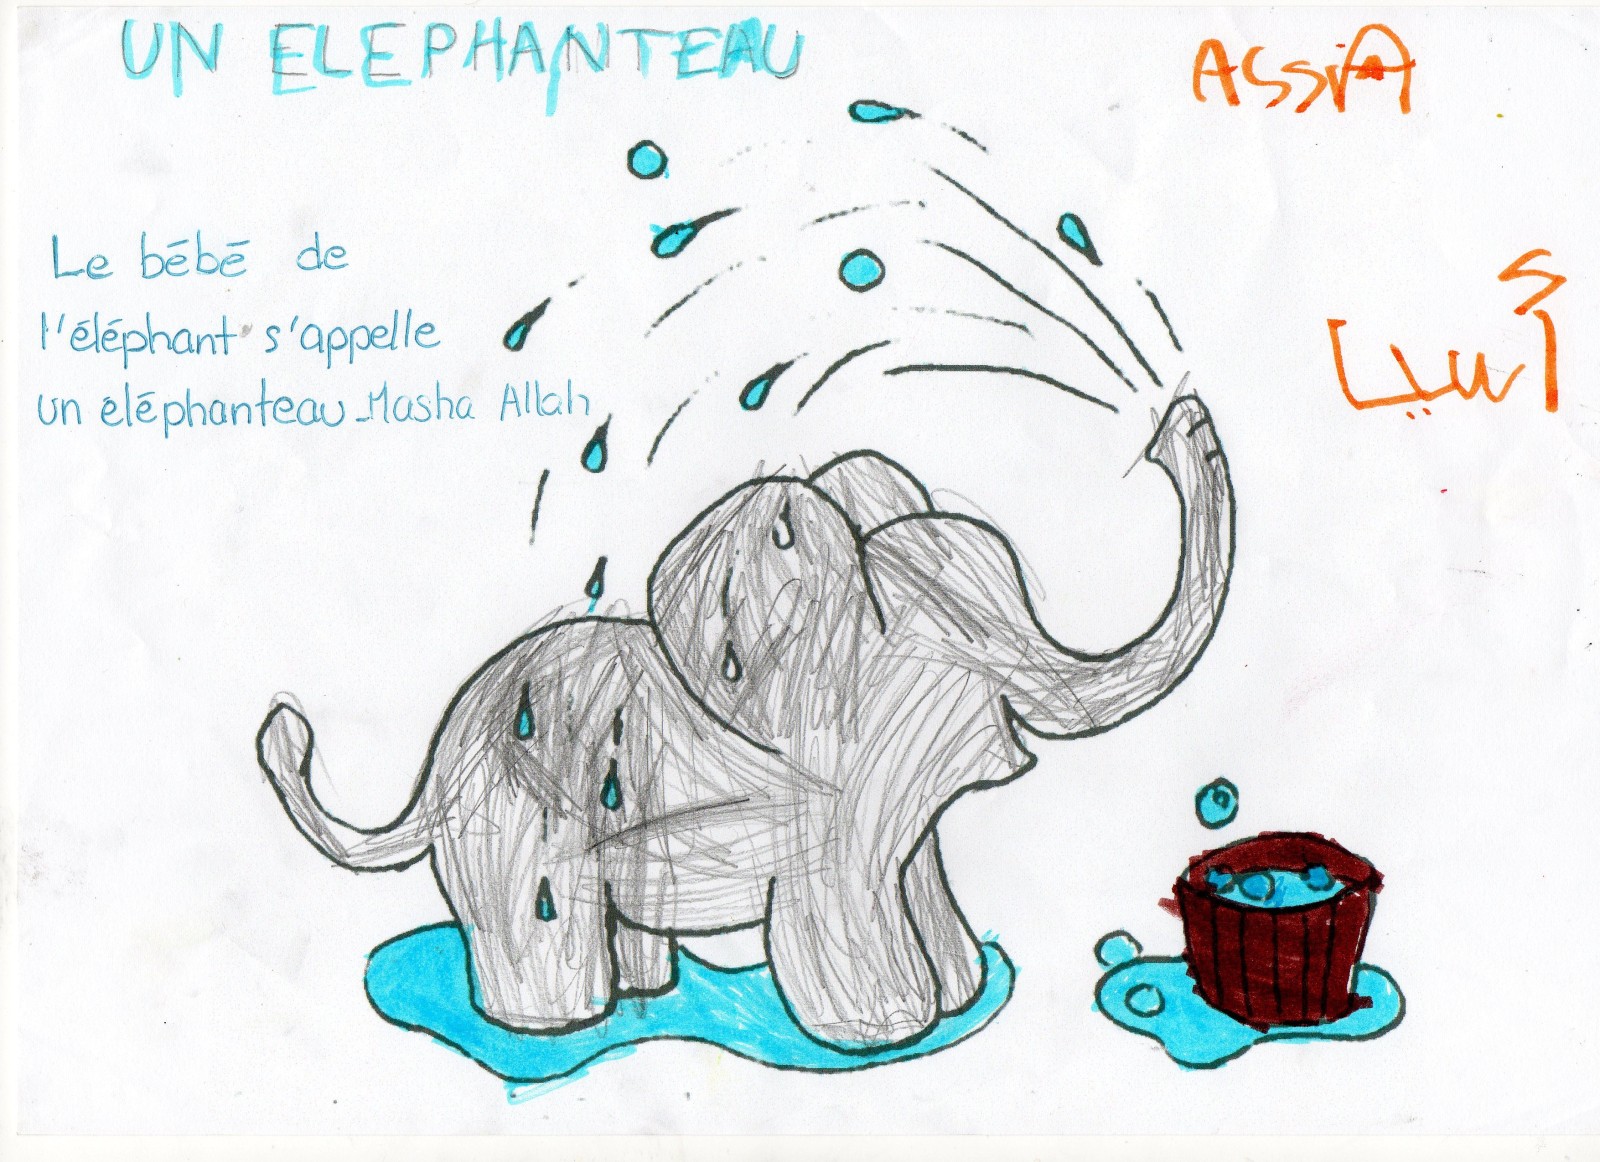 UN ELEPHANTEAU
ASSiA
Le bébé de
l'éléphant s'appelle
un éléphanteau_Masha Allah
أسيا